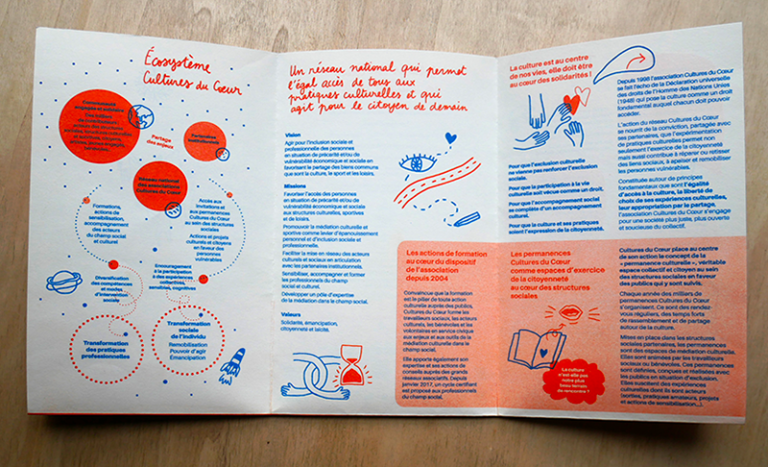 Écosystème
Cultures du Cœur
Partage
des enjeux
Partenaires
institutionnels
Réseau national
des associations
Cultures du Cœur
Formations,
actions de
sensibilisation,
accompagnement
des acteurs
du champ social
et culturel
Accès aux
invitations et
aux permanences
Cultures du Cœur
au sein des structures
sociales
Actions et projets
culturels et citoyens
en faveur des
personnes
vulnérables
Diversification
des compétences
et modes
d'intervention
sociale
Encouragement
à la participation
à des expériences
collectives,
sensibles, cognitives
Transformation
des pratiques
professionnelles
Transformation
sociale
de l'individu
Remobilisation
Pouvoir d'agir
Émancipation
Un réseau national qui permet
l'égal accès de tous aux
pratiques culturelles et qui
agit pour le citoyen de demain
Vision
Agir pour l'inclusion sociale et
professionnelle des personnes
en situation de précarité et/ou de
vulnérabilité économique et sociale en
favorisant le partage des biens communs
que sont la culture, le sport et les loisirs.
Missions
Favoriser l'accès des personnes
en situation de précarité et/ou de
vulnérabilité économique et sociale
aux structures culturelles, sportives
et de loisirs.
Promouvoir la médiation culturelle et
sportive comme levier d'épanouissement
personnel et d'inclusion sociale et
professionnelle.
Faciliter la mise en réseau des acteurs
culturels et sociaux en articulation
avec les partenaires institutionnels.
Sensibiliser, accompagner et former
les professionnels du champ
social et culturel.
Développer un pôle d'expertise
de la médiation dans le champ social.
Valeurs
Solidarité, émancipation,
citoyenneté et laïcité.
Les actions de formation
au cœur du dispositif
de l'association
depuis 2004
Convaincue que la formation
est le pilier de toute action
culturelle auprès des publics,
Cultures du Cœur forme les
travailleurs sociaux, les acteurs
culturels, les bénévoles et les
volontaires en service civique
aux enjeux et aux outils de la
médiation culturelle dans le
champ social.
Elle apporte également son
expertise et ses actions de
conseils auprès des grands
réseaux associatifs. Depuis
janvier 2017, un cycle certifiant
est proposé aux professionnels
du champ social.
La culture est au centre
de nos vies, elle doit être
au cœur des solidarités !
Pour que l'exclusion culturelle
ne vienne pas renforcer l'exclusion
sociale.
Pour que la participation à la vie
culturelle soit vécue comme un droit.
Pour que l'accompagnement social
se complète d'un accompagnement
culturel.
Pour que la culture et ses pratiques
soient l'expression de la citoyenneté.
Depuis 1998 l'association Cultures du Cœur
se fait l'écho de la Déclaration universelle
des droits de l'Homme des Nations Unies
(1948) qui pose la culture comme un droit
fondamental auquel chacun doit pouvoir
accéder.
L'action du réseau Cultures du Cœur
se nourrit de la conviction, partagée avec
ses partenaires, que l'expérimentation
de pratiques culturelles permet non
seulement l'exercice de la citoyenneté
mais aussi contribue à réparer ou retisser
des liens sociaux, à apaiser et remobiliser
les personnes vulnérables.
Constituée autour de principes
fondamentaux que sont l'égalité
d'accès à la culture, la liberté de
choix de ses expériences culturelles,
leur appropriation par le partage,
l'association Cultures du Cœur s'engage
pour une société plus juste, plus ouverte
et soucieuse du collectif.
Les permanences
Cultures du Cœur
comme espaces d'exercice
de la citoyenneté
au cœur des structures
sociales
La culture
n'est-elle pas
notre plus
beau terrain
de rencontre ?
Cultures du Cœur place au centre
de son action le concept de la
« permanence culturelle », véritable
espace collectif et citoyen au sein
des structures sociales en faveur
des publics qui y sont suivis.
Chaque année des milliers de
permanences Cultures du Cœur
s'organisent. Ce sont des rendez-
vous réguliers, des temps forts
de rassemblement et de partage
autour de la culture.
Mises en place dans les structures
sociales partenaires, les permanences
sont des espaces de médiation culturelle.
Elles sont animées par les travailleurs
sociaux ou bénévoles. Ces permanences
sont définies, conçues et réalisées avec
les publics en situation d'exclusion.
Elles suscitent des expériences
culturelles dont ils sont acteurs
(sorties, pratiques amateurs, projets
et actions de sensibilisation...).